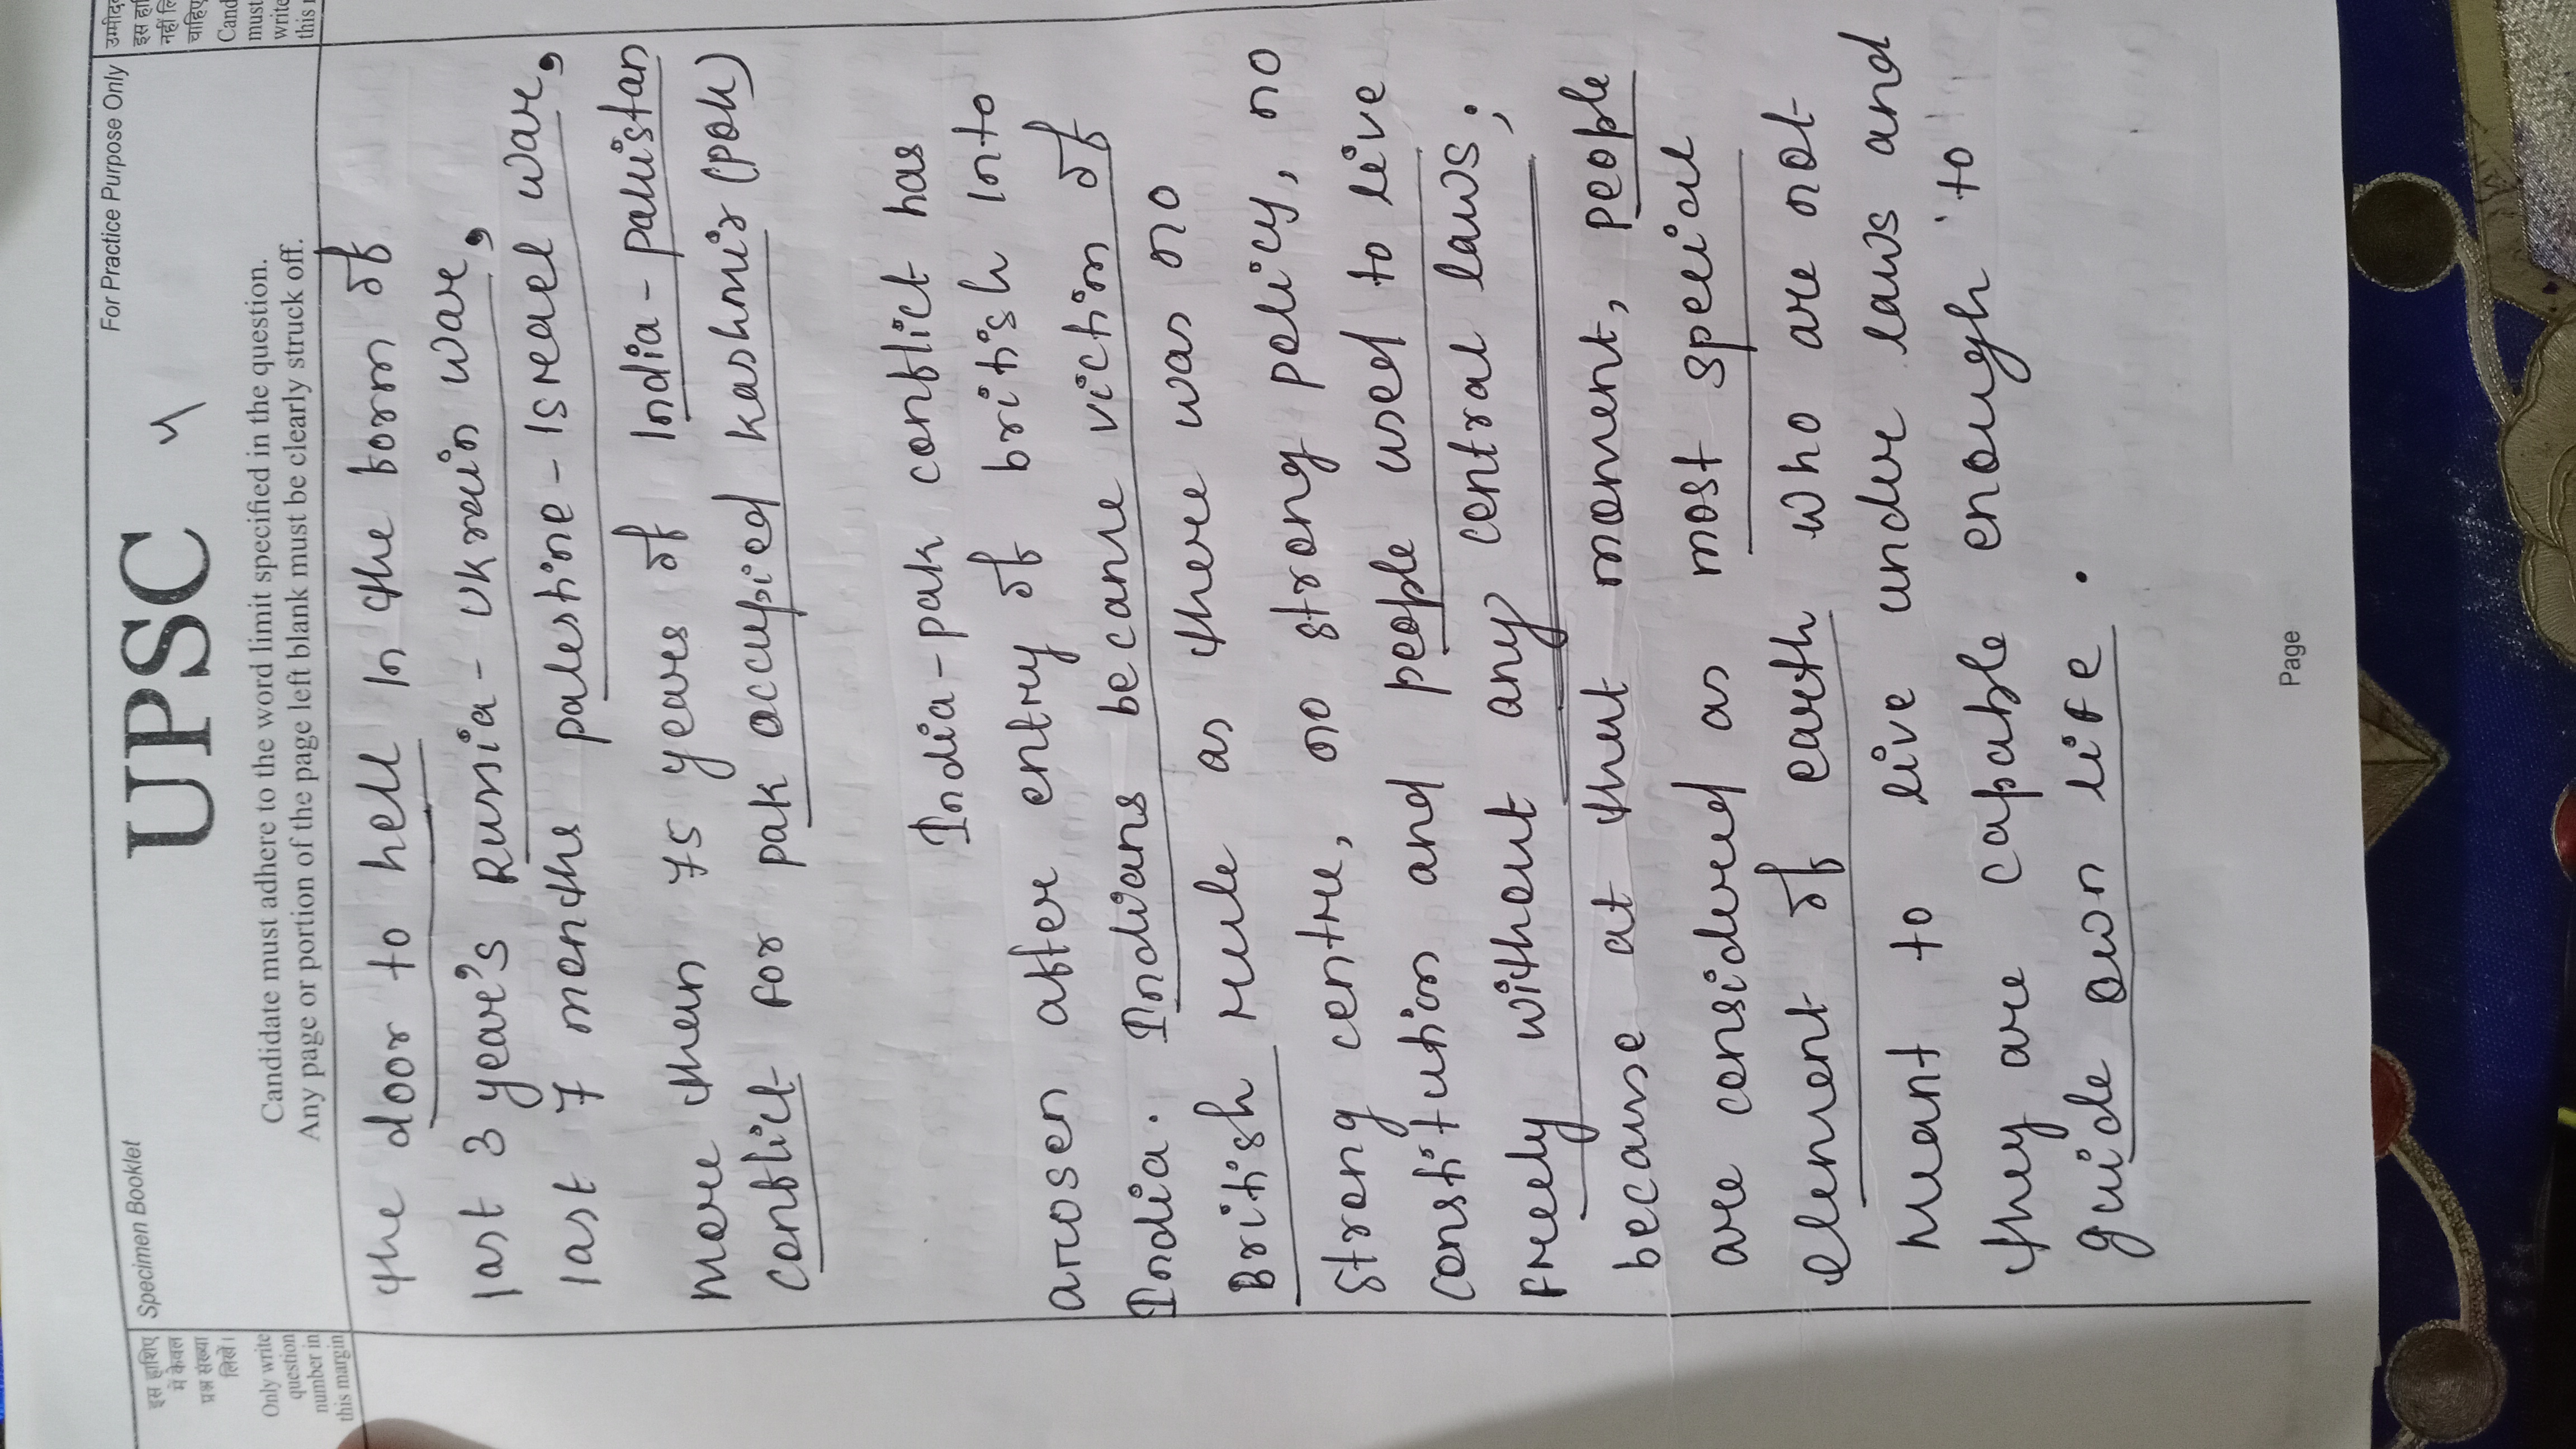 इस हाशिए
में केवल
प्रश्न संख्या
लिखें।
Only write
question
number in
this margin
Specimen Booklet
UPSC
4
For Practice Purpose Only
Candidate must adhere to the word limit specified in the question.
Any page or portion of the page left blank must be clearly struck off.
उम्मीद
इस हा
नहीं लि
चाहिए
Cand
must
write
this
the door to hell in the form of
last 3 year's Russia - ukrain war,
last 7 months palestine - Isreael war,
more then 75 years of India - pakistan
conflict for pak occupied kashmir (pok)
India - pak conflict has
arosen after entry of british into
India. Indians became victim of
British rule as there was no
strong centre, no strong policy, no
constitution and people used to live
freely without any central laws;
because at that moment, people
are considered as most special
element of earth who are not
meant to live under laws and
they are capable enough to
guide own life.
Page